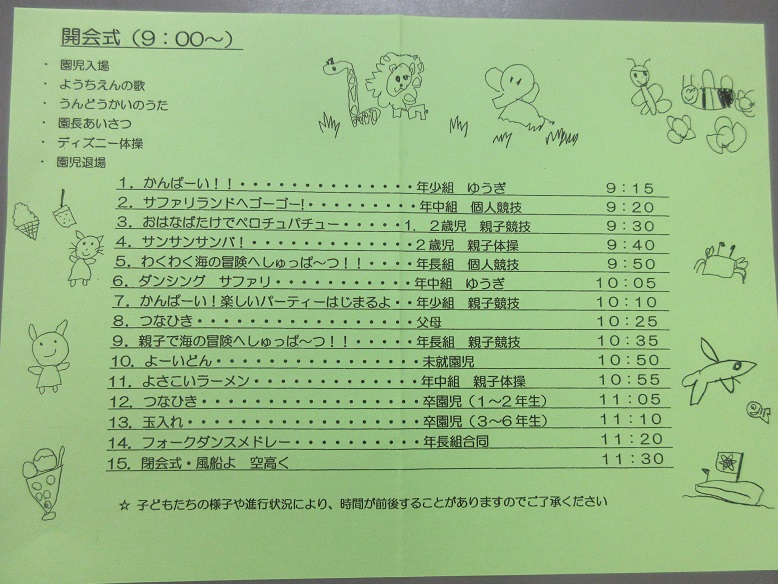 開会式（9：00～）
・ 園児入場
・ ようちえんの歌
・ うんどうかいのうた
・ 園長あいさつ
・ ディズニー体操
・ 園児退場
1．かんぱーい！！・・・・・・・・・・・・・・・年少組　ゆうぎ　9：15
2．サファリランドへゴーゴー!・・・・・・・・・・年中組　個人競技　9：20
3．おはなばたけでペロチュパチュー・・・・・1．2歳児　親子競技　9：30
4．サンサンサンバ！・・・・・・・・・・・・・2歳児　親子体操　9：40
5．わくわく海の冒険へしゅっぱ～つ！！・・・・年長組　個人競技　9：50
6．ダンシング　サファリ・・・・・・・・・・・年中組　ゆうぎ　10：05
7．かんぱーい！楽しいパーティーはじまるよ・・年少組　親子競技　10：10
8．つなひき・・・・・・・・・・・・・・・・・父母　10：25
9．親子で海の冒険へしゅっぱ～つ！！・・・・・年長組　親子競技　10：35
10．よーいどん・・・・・・・・・・・・・・・未就園児　10：50
11．よさこいラーメン・・・・・・・・・・・・年中組　親子体操　10：55
12．つなひき・・・・・・・・・・・・・・・・卒園児（1～2年生）　11：05
13．玉入れ・・・・・・・・・・・・・・・・・卒園児（3～6年生）　11：10
14．フォークダンスメドレー・・・・・・・・・・年長組合同　11：20
15．閉会式・風船よ　空高く　11：30
☆ 子どもたちの様子や進行状況により、時間が前後することがありますのでご了承ください